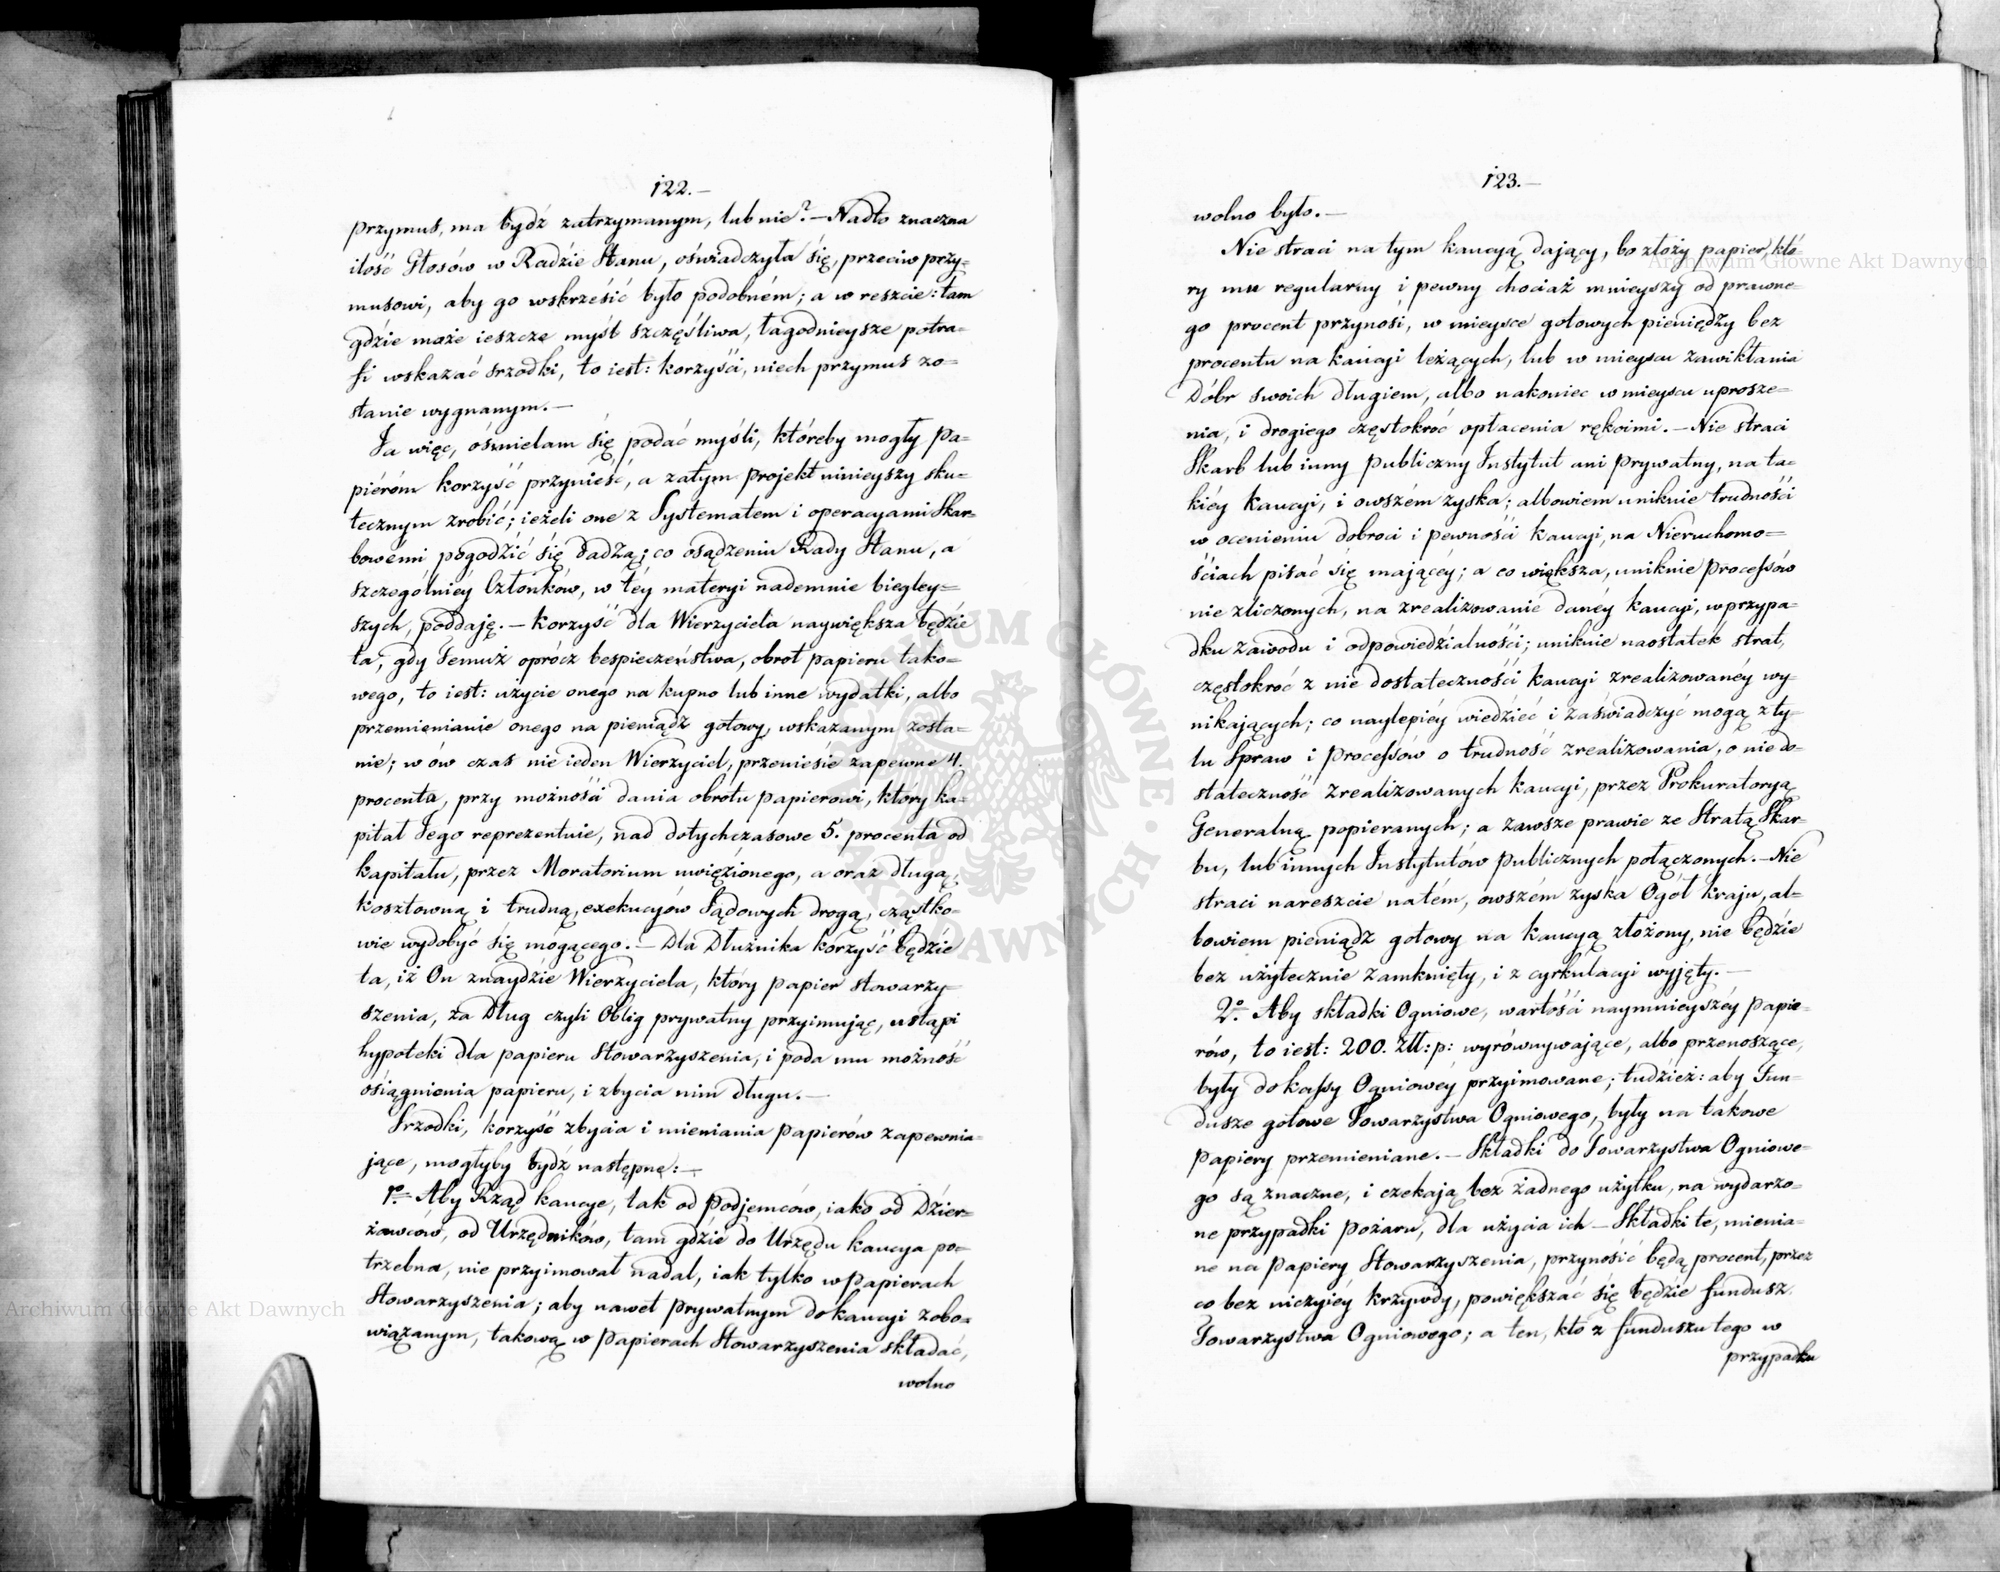 122.—
przymus, ma bydź zatrzymanym, lub nie?— Nadto znaczna
ilość Głosów w Radzie Stanu, oświadczyła się, przeciw przy=
musowi, aby go wskrześić było podobném; a w reszcie: tam
gdzie może ieszcze myśl szczęśliwa, łagodnieysze potra=
fi wskazać srzodki, to iest: korzyści, niech przymus zo=
stanie wygnanym.—
Ja więc, ośmielam się podać myśli, któreby mogły pa=
piéróm korzyść przynieść, a zatym projekt ninieyszy sku=
tecznym zrobić; ieżeli one z Systematem i operacyami Skar=
bowemi pogodzić się dadzą; co osądzeniu Rady Stanu, a
szczególniéy Członków, w téy materyi nademnie biegley=
szych, poddaję.— Korzyść dla Wierzyciela naywiększa będzie
ta, gdy Jemuż oprócz bespieczeństwa, obrot papieru tako=
wego, to iest: użycie onego na kupno lub inne wydatki, albo
przemienianie onego na pieniądz gotowy, wskazanym zosta=
nie; w ów czas nie ieden Wierzyciel, przeniesie zapewne 4.
procenta, przy możności dania obrotu papierowi, ktory ka=
pitał Jego reprezentuie, nad dotychczasowe 5. procenta od
kapitału, przez Moratorium uwięzionego, a oraz długą,
kosztowną i trudną, exekucyów Sądowych drogą, cząstko=
wie wydobyć się mogącego.— Dla Dłużnika korzyść będzie
ta, iż On znaydzie Wierzyciela, który papier stowarzy=
szenia, za Dług czyli Oblig prywatny przyimując, ustąpi
hypoteki dla papieru Stowarzyszenia, i poda mu możność
osiągnienia papieru, i zbycia nim długu.—
Srzodki, korzyść zbycia i mieniania papierów zapewnia=
jące, mogłyby bydź następne:—
1º Aby Rząd kaucye, tak od Podjemców, iako od Dzier=
żawców, od Urzędników, tam gdzie do Urzędu kaucya po=
trzebna, nie przyimował nadal, iak tylko w papierach
Stowarzyszenia; aby nawet prywatnym do kaucyi zobo=
wiązanym, takową w papierach Stowarzyszenia składać,
wolno
123.—
wolno było.—
Nie straci na tym kaucyą dający, bo złoży papier, któ=
ry mu regularny i pewny chociaż mnieyszy od prawne=
go procent przynosi, w mieysce gotowych pieniędzy bez
procentu na kaucyi leżących, lub w mieyscu zawikłania
Dóbr swoich długiem, albo nakoniec w mieyscu uprosze=
nia, i drogiego częstokroć opłacenia rękoimi.— Nie straci
Skarb lub inny publiczny Instytut ani prywatny, na ta=
kiéy kaucyi, i owszém zyska; albowiem uniknie trudności
w ocenieniu dobroci i pewności kaucyi, na Nieruchomo=
ściach pisać się maiącéy; a co większa, uniknie processów
nie zliczonych, na zrealizowanie danéy kaucyi, w przypa=
dku zawodu i odpowiedzialności; uniknie naostatek strat,
częstokroć z nie dostateczności kaucyi zrealizowanéy wy=
nikających; co naylepiéy wiedzieć i zaświadczyć mogą z ty=
lu Spraw i processów o trudność zrealizowania, o nie do=
stateczność zrealizowanych kaucyi, przez Prokuratoryą
Generalną popieranych; a zawsze prawie ze Stratą Skar=
bu, lub innych Instytutów publicznych połączonych.— Nie
straci nareszcie na tém, owszém zyska Ogół kraju, al=
bowiem pieniądz gotowy na kaucyą złożony, nie będzie
bez użytecznie zamknięty, i z cyrkulacyi wyjęty.—
2º Aby składki Ogniowe, wartości naymnieyszéy papie=
rów, to iest: 200. Zll: p: wyrównywające, albo przenoszące,
były do kassy Ogniowéy przyimowane; tudzież: aby Fun=
dusze gotowe Towarzystwa Ogniowego, były na takowe
papiery przemieniane.— Składki do Towarzystwa Ogniowe=
go są znaczne, i czekają bez żadnego użytku, na wydarzo=
ne przypadki pożaru, dla użycia ich— Składki te, mienia=
ne na papiery Stowarzyszenia, przynosić będą procent, przez
co bez niczyiéy krzywdy, powiększać się będzie fundusz
Towarzystwa Ogniowego; a ten, kto z funduszu tego w
przypadku
Archiwum Główne Akt Dawnych
Archiwum Główne Akt Dawnych
ARCHIWUM GŁÓWNE AKT DAWNYCH